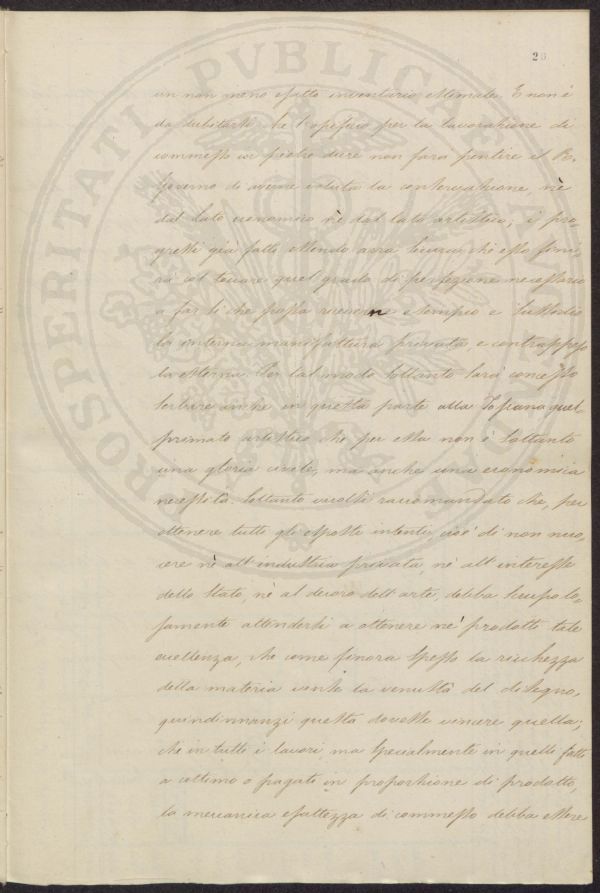 23
un non meno esatto inventario estimale. E non è
da dubitarsi che l'opificio per la lavorazione di
commesso in pietre dure non farà pentire il R.
Governo di averne voluta la conservazione nè
dal lato economico nè dal lato artistico; i pro=
gressi già fatti essendo arra sicura che esso
col toccare quel grado di perfezione necessario
a far sì che possa riescire esempio e sussidio
la interna manifattura privata, e contrappeso
la esterna. Per tal modo soltanto sarà concesso
serbare anche in questa parte alla Toscana quel
primato artistico che per essa non è soltanto
una gloria civile, ma anche una economica
necessità. Soltanto vuolsi raccomandato che, per
ottenere tutti gli esposti intenti, cioè di non nuo=
cere nè all'industria privata, nè all'interesse
dello Stato, nè al decoro dell'arte, debba scrupolo=
samente attendersi a ottenere ne' prodotti tale
eccellenza, che come finora spesso la ricchezza
della materia vinse la venustà del disegno,
quindinnanzi questa dovesse vincere quella;
che in tutti i lavori, ma specialmente in quelli fatti
a cottimo o pagati in proporzione di prodotto,
la meccanica esattezza di commesso debba essere
PROSPERITATI PVBLICAE AVGENDAE